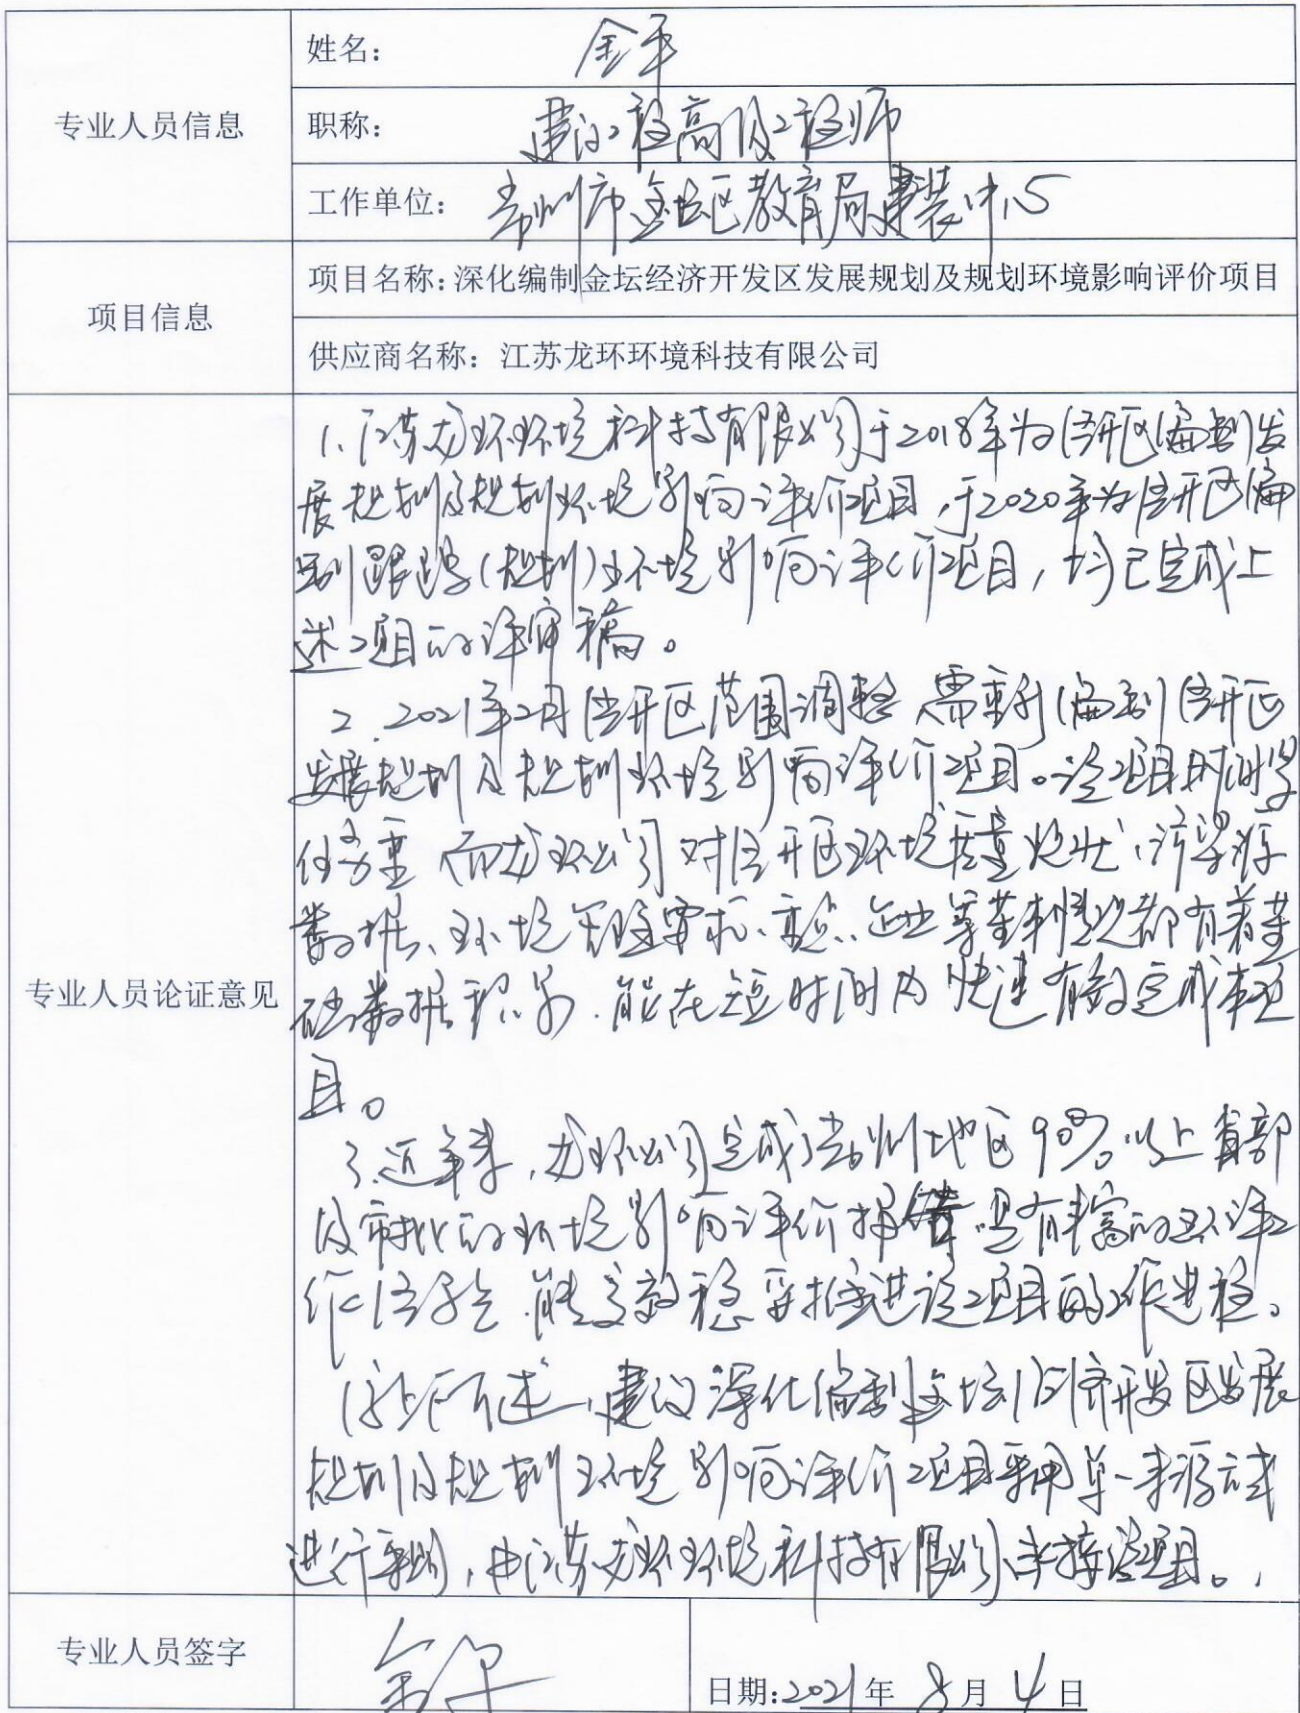 专业人员信息
姓名: 金平
职称: 建设工程高级工程师
工作单位: 常州市金坛区教育局建装中心
项目信息
项目名称:深化编制金坛经济开发区发展规划及规划环境影响评价项目
供应商名称: 江苏龙环环境科技有限公司
专业人员论证意见
1、江苏龙环环境科技有限公司于2018年为经开区编制发
展规划及规划环境影响评价项目,于2020年为经开区编
制跟踪(规划)环境影响评价项目,均已完成上
述项目的评审稿。
2、2021年2月经开区范围调整 需重新编制经开区
发展规划及规划环境影响评价项目。该项目时间紧
任务重 而龙环公司对经开区环境质量现状、污染源
数据、环境 要求、重点企业等基本情况都有着基
础数据积累、能在短时间内快速有效完成本项
目。
3、近年来,龙环公司完成了常州地区90%以上省部
及市批的环境影响评价报 有丰富的环评工
作经验、能高效稳妥推进该项目的工作进程。
综上所述,建议深化编制金坛经济开发区发展
规划及规划环境影响评价项目采用单一来源方式
进行采购,由江苏龙环环境科技有限公司承接该项目。
专业人员签字
金平
日期:2021年 8月 4日